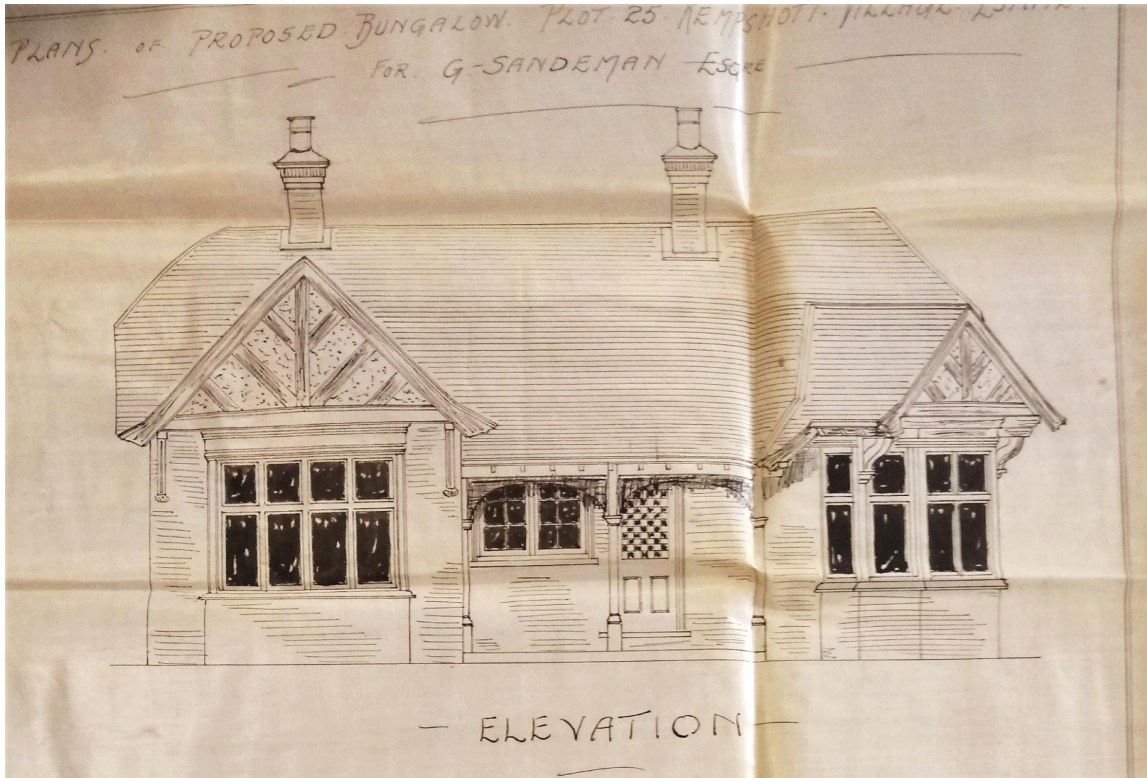 PLANS. OF PROPOSED BUNGALOW. PLOT. 25. KEMPSHOTT. VILLAGE. ESTATE.
FOR. G-SANDEMAN ESQRE
- ELEVATION -